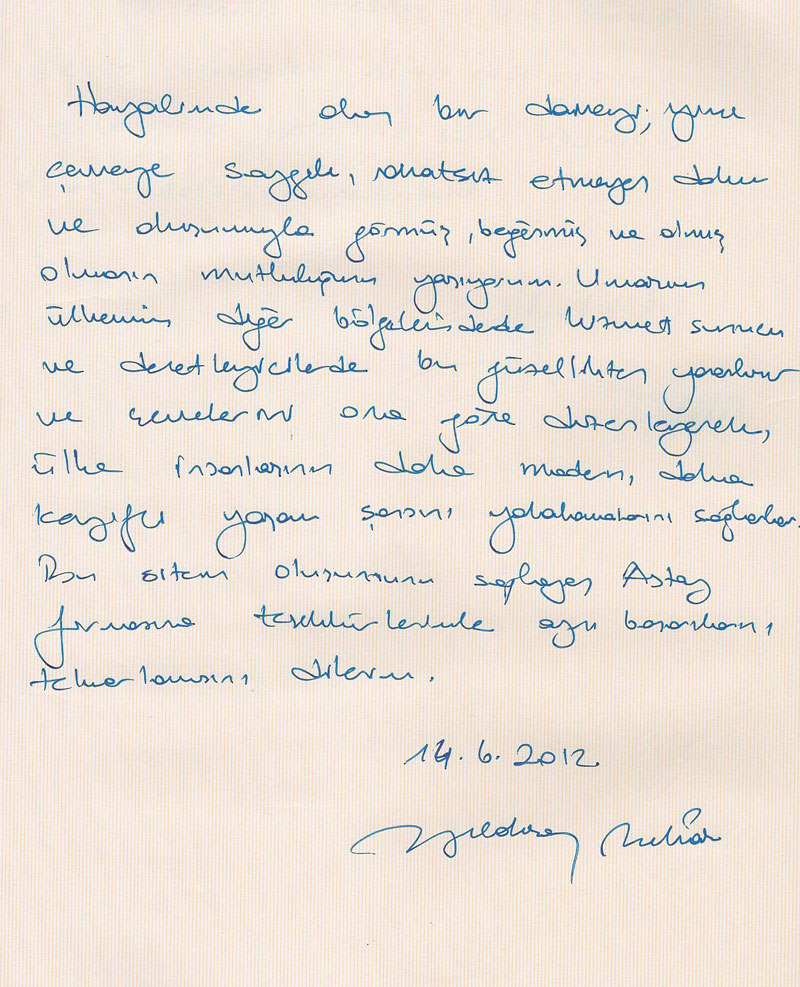 Hayalimde olan bir daireyi; yani
çevreye saygılı, rahatsız etmeyen
ve oluşumuyla görmüş, beğenmiş ve almış
olmanın mutluluğunu yaşıyorum. Umarım
ülkemin diğer bölgelerindede hizmet sunan
ve devletleyicilerde bu güzellikten yararlanır
ve çevrelerini ona göre düzenleyerek,
ülke insanlarının daha modern, daha
keyifli yaşam şansını yakalamalarını sağlarlar.
Bu sitenin oluşumunu sağlayan Astay
firmasına teşekkürlerimle aynı başarılarını
tekrarlamasını dilerim.
14.6.2012